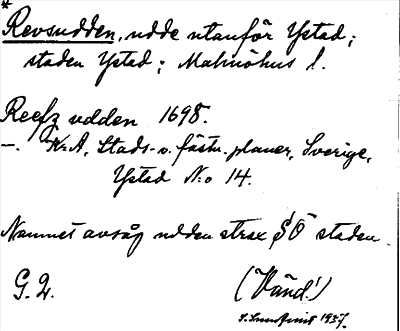 *
Revsudden, udde utanför Ystad;
staden Ystad; Malmöhus l.
Reefz udden 1698.
—. Kr.A, Stads- o. fästn. planer, Sverige,
Ystad N:o 14.
Namnet avsåg udden strax SÖ staden
G. 2.
(Vänd!)
S. Lundqvist 1937.